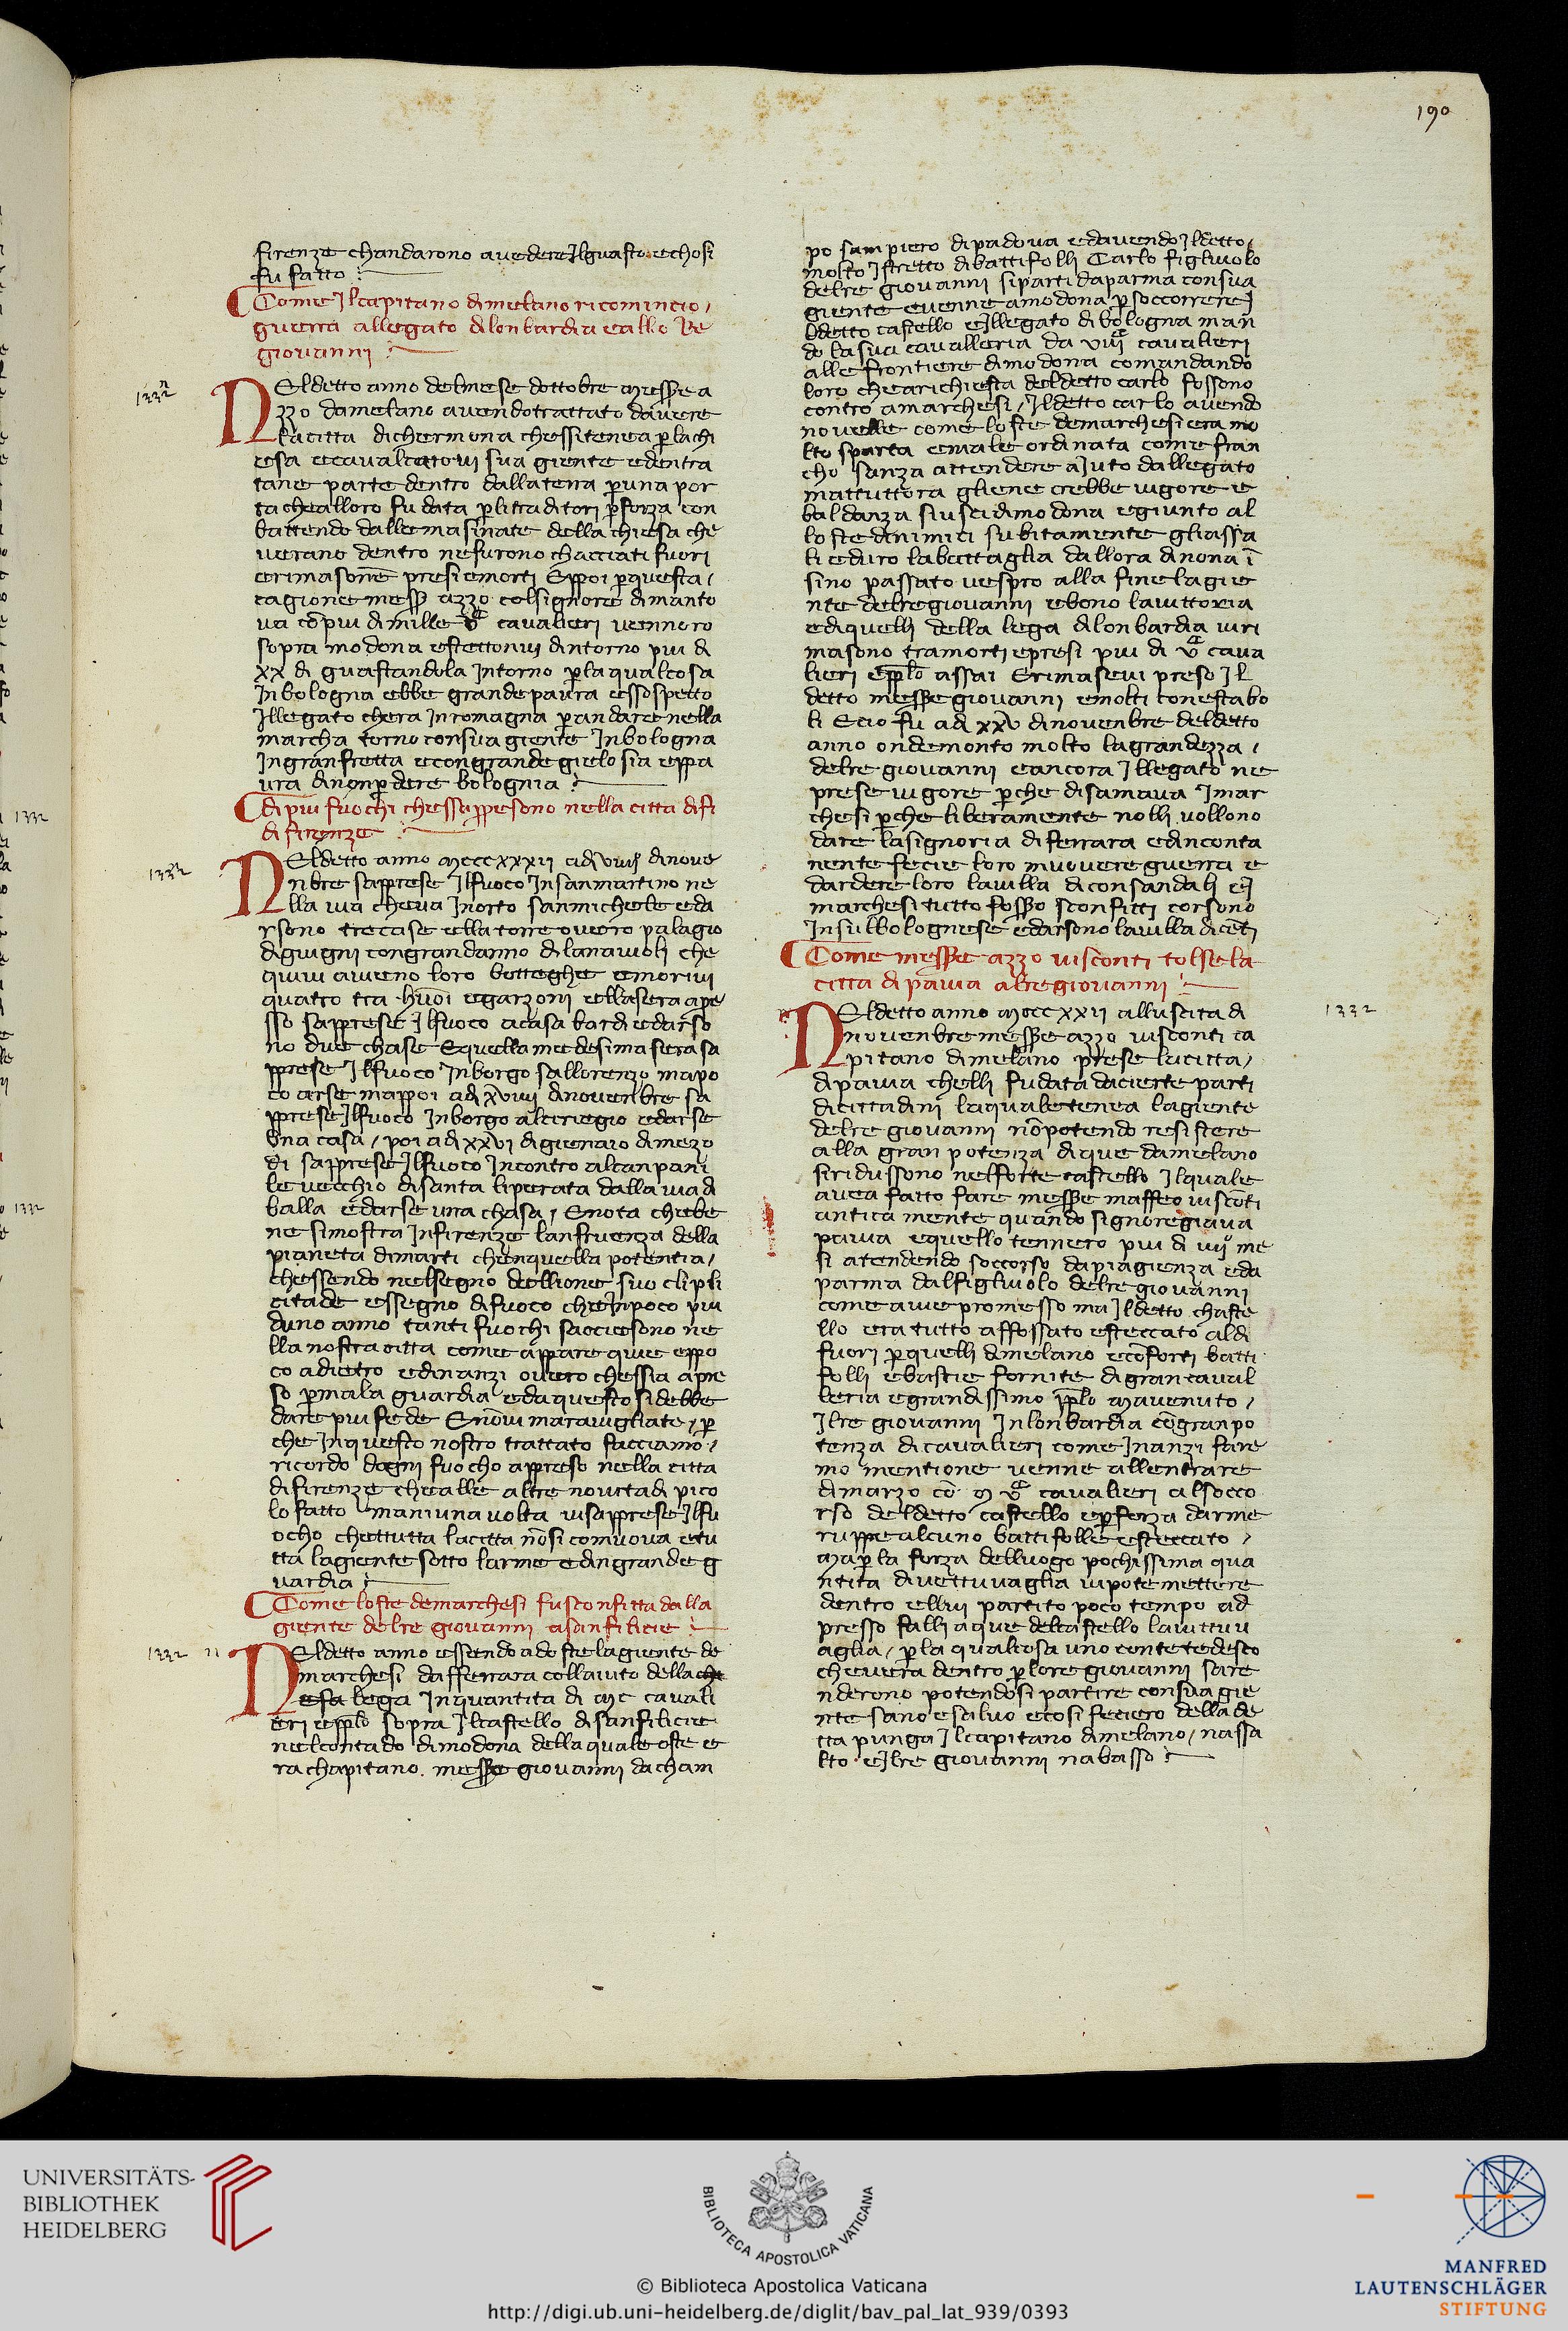 190
firenze chandarono a vedere Jlguasto echosi
fu fatto
Come Jlcapitano dimelano ricomincio /
guerra allegato dilonbardia eallo Re
giovanni
1332
NEldetto anno delmese dottobre messere a
zzo damelano avendo trattato davere
la citta dichermona chessitenea p lachi
esa ecavalcatovi sua giente edentra
tane parte dentro dallaterra p una por
ta chealloro fu data p litraditori p forza con
battendo dallemasinate della chiesa che
verano dentro nefurono chacciati fuori
erimasone presi emorti Eppoi p questa /
cagione mess azzo colsignore dimanto
va co piu dimille vc cavalieri vennoro
sopra modona estettonvi dintorno piu di
xx di guastandola Jntorno p laqualcosa
Jnbologna ebbe grande paura essospetto
Jllegato chera Jnromagna p andare nella
marcha torno consua giente Jnbologna
Jngranfretta econgrande gielosia eppa
ura dinonp dere bolognia
di piu fuochi chessappresono nella citta difi
di firenze
1332
NEldetto anno mcccxxxii adi viiij dinove
nbre sapprese Jlfuoco Jnsanmartino ne
lla via cheva Jnorto sanmichele eda
rsono trecase ella torre overo palagio
digiugni congrandanno dilanaiuoli che
quivi aveno loro botteghe emorivi
quatro tra huoi egarzoni ellasera apre
sso sapprese Jlfuoco acasa bardi edarso
no due chase Equella medesima sera sa
pprese Jlfuoco Jnborgo sallorenzo mapo
co arse mappoi adi xviiij dinovenbre sa
pprese Jlfuoco Jnborgo alcriegio edarse
una casa / poi adi xxvi digienaio dimezo
di sapprese Jlfuoco Jncontro alcanpani
le vecchio disanta liperata dalla via di
balla edarse una chasa / Enota chebe
ne simostra Jnfirenze lanfruenza della
pianeta dimarti chenquella potentia /
chessendo nelsegno dellione suo clipli
citade essegno difuoco cheJnpoco piu
duno anno tanti fuochi saciesono ne
lla nostra citta come appare quie eppo
co adietro edinanzi overo chessia apre
so p mala guardia edaquesto sidebbe
dare piu fede Enonvi maravigliate / p
che Jnquesto nostro trattato facciamo /
ricordo dogni fuocho appreso nella citta
difirenze chealle altre novitadi pico
lo fatto maniuna volta visapprese Jlfu
ocho chettutta lacitta nosi comuova etu
tta lagiente sotto larme edingrande g
uardia
Come loste demarchesi fusconfitta dalla
giente delre giovanni asanfilicie
1332
NEldetto anno essendo adoste lagiente de
marchesi dafferrara collaiuto dellachi
esa lega Jnquantita di mc cavali
eri epplo sopra Jlcastello disanfilicie
nelcontado dimodona della quale oste e
ra chapitano messere giovanni dacham
po sampiero dipadova edavendo Jldetto /
molto Jstretto dibattifolli Carlo figliuolo
delre giovanni siparti daparma consua
giente evenne amodona p soccorrere J
ldetto castello eJllegato dibologna man
do lasua cavalleria da viiijc cavalieri
alle frontiere dimodona comandando
loro chearichiesta deldetto carlo fossono
contro amarchesi / Jldetto carlo avendo
novelle come loste demarchesi era mo
lto sparta emale ordinata come fran
cho sanza attendere ajuto dallegato
mattuttora gliene crebbe vigore e
baldanza siuscidimodona egiunto al
loste dinimici subitamente gliassa
li eduro labattaglia dallora dinona i
sino passato vespro alla fine lagie
nte delregiovanni ebono lavittoria
ediquelli della lega dilonbardia viri
masono tramorti epresi piu di vc cava
lieri epplo assai Erimasevi preso Jl
detto messere giovanni emolti conestabo
li Ecio fu adi xxv dinovenbre deldetto
anno ondemonto molto lagrandezza /
delre giovanni eancora Jllegato ne
prese vigore p che disamava Jmar
chesi p che liberamente nolli vollono
dare lasignoria diferrara edinconta
nente fecie loro muovere guerra e
dardere loro lavilla diconsandali eJ
marchesi tutto fossero sconfitti corsono
Jnsulbolognese edarsono lavilla diceti
Come messere azzo visconti tolse la
citta di pavia alregiovanni
1332
NEldetto anno mcccxxii alluscita di
novenbre messere azzo visconti ca
pitano dimelano prese lacitta /
dipavia chelli fudata dacierte parti
dicittadini laquale tenea lagiente
delre giovanni no potendo resistere
alla gran potenza dique damelano
siridussono nelforte castello Jlquale
avea fatto fare messere maffeo visconti
anticamente quando signoregiava
pavia equello tennero piu di iiij me
si atendendo soccorso dapiagienza eda
parma dalfigliuolo delre giovanni
come avie promesso ma Jldetto chaste
llo era tutto affossato esteccato aldi
fuori p quelli dimelano ecoforti batti
folli ebastie fornite digrancaval
leria egrandissimo pplo mavenuto /
Jlre giovanni Jnlonbardia cogranpo
tenza dicavalieri come Jnanzi fare
mo mentione venne allentrare
dimarzo co m vc cavalieri alsocco
rso deldetto castello ep forza darme
ruppe alcuno battifolle esteccato /
map la forza delluogo pochissima qua
ntita divettuvaglia vi pote mettere
dentro ellui partito poco tempo ad
presso falli aque delcastello lavittuv
aglia / p la qualcosa uno contetedesco
chevera dentro p lore giovanni sare
nderono potendosi partire consua gie
nte sano esalvo ecosi feciero della de
tta punga Jlcapitano dimelano / nassa
lto eJlre giovanni nabasso
UNIVERSITÄTS-
BIBLIOTHEK
HEIDELBERG
BIBLIOTECA APOSTOLICA VATICANA
© Biblioteca Apostolica Vaticana
http://digi.ub.uni-heidelberg.de/diglit/bav_pal_lat_939/0393
MANFRED
LAUTENSCHLÄGER
STIFTUNG